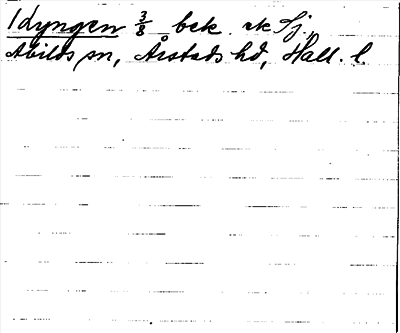 Idyngen 3/8 bek. ak Sj.,
Abilds sn, Årstads hd, Hall. l.